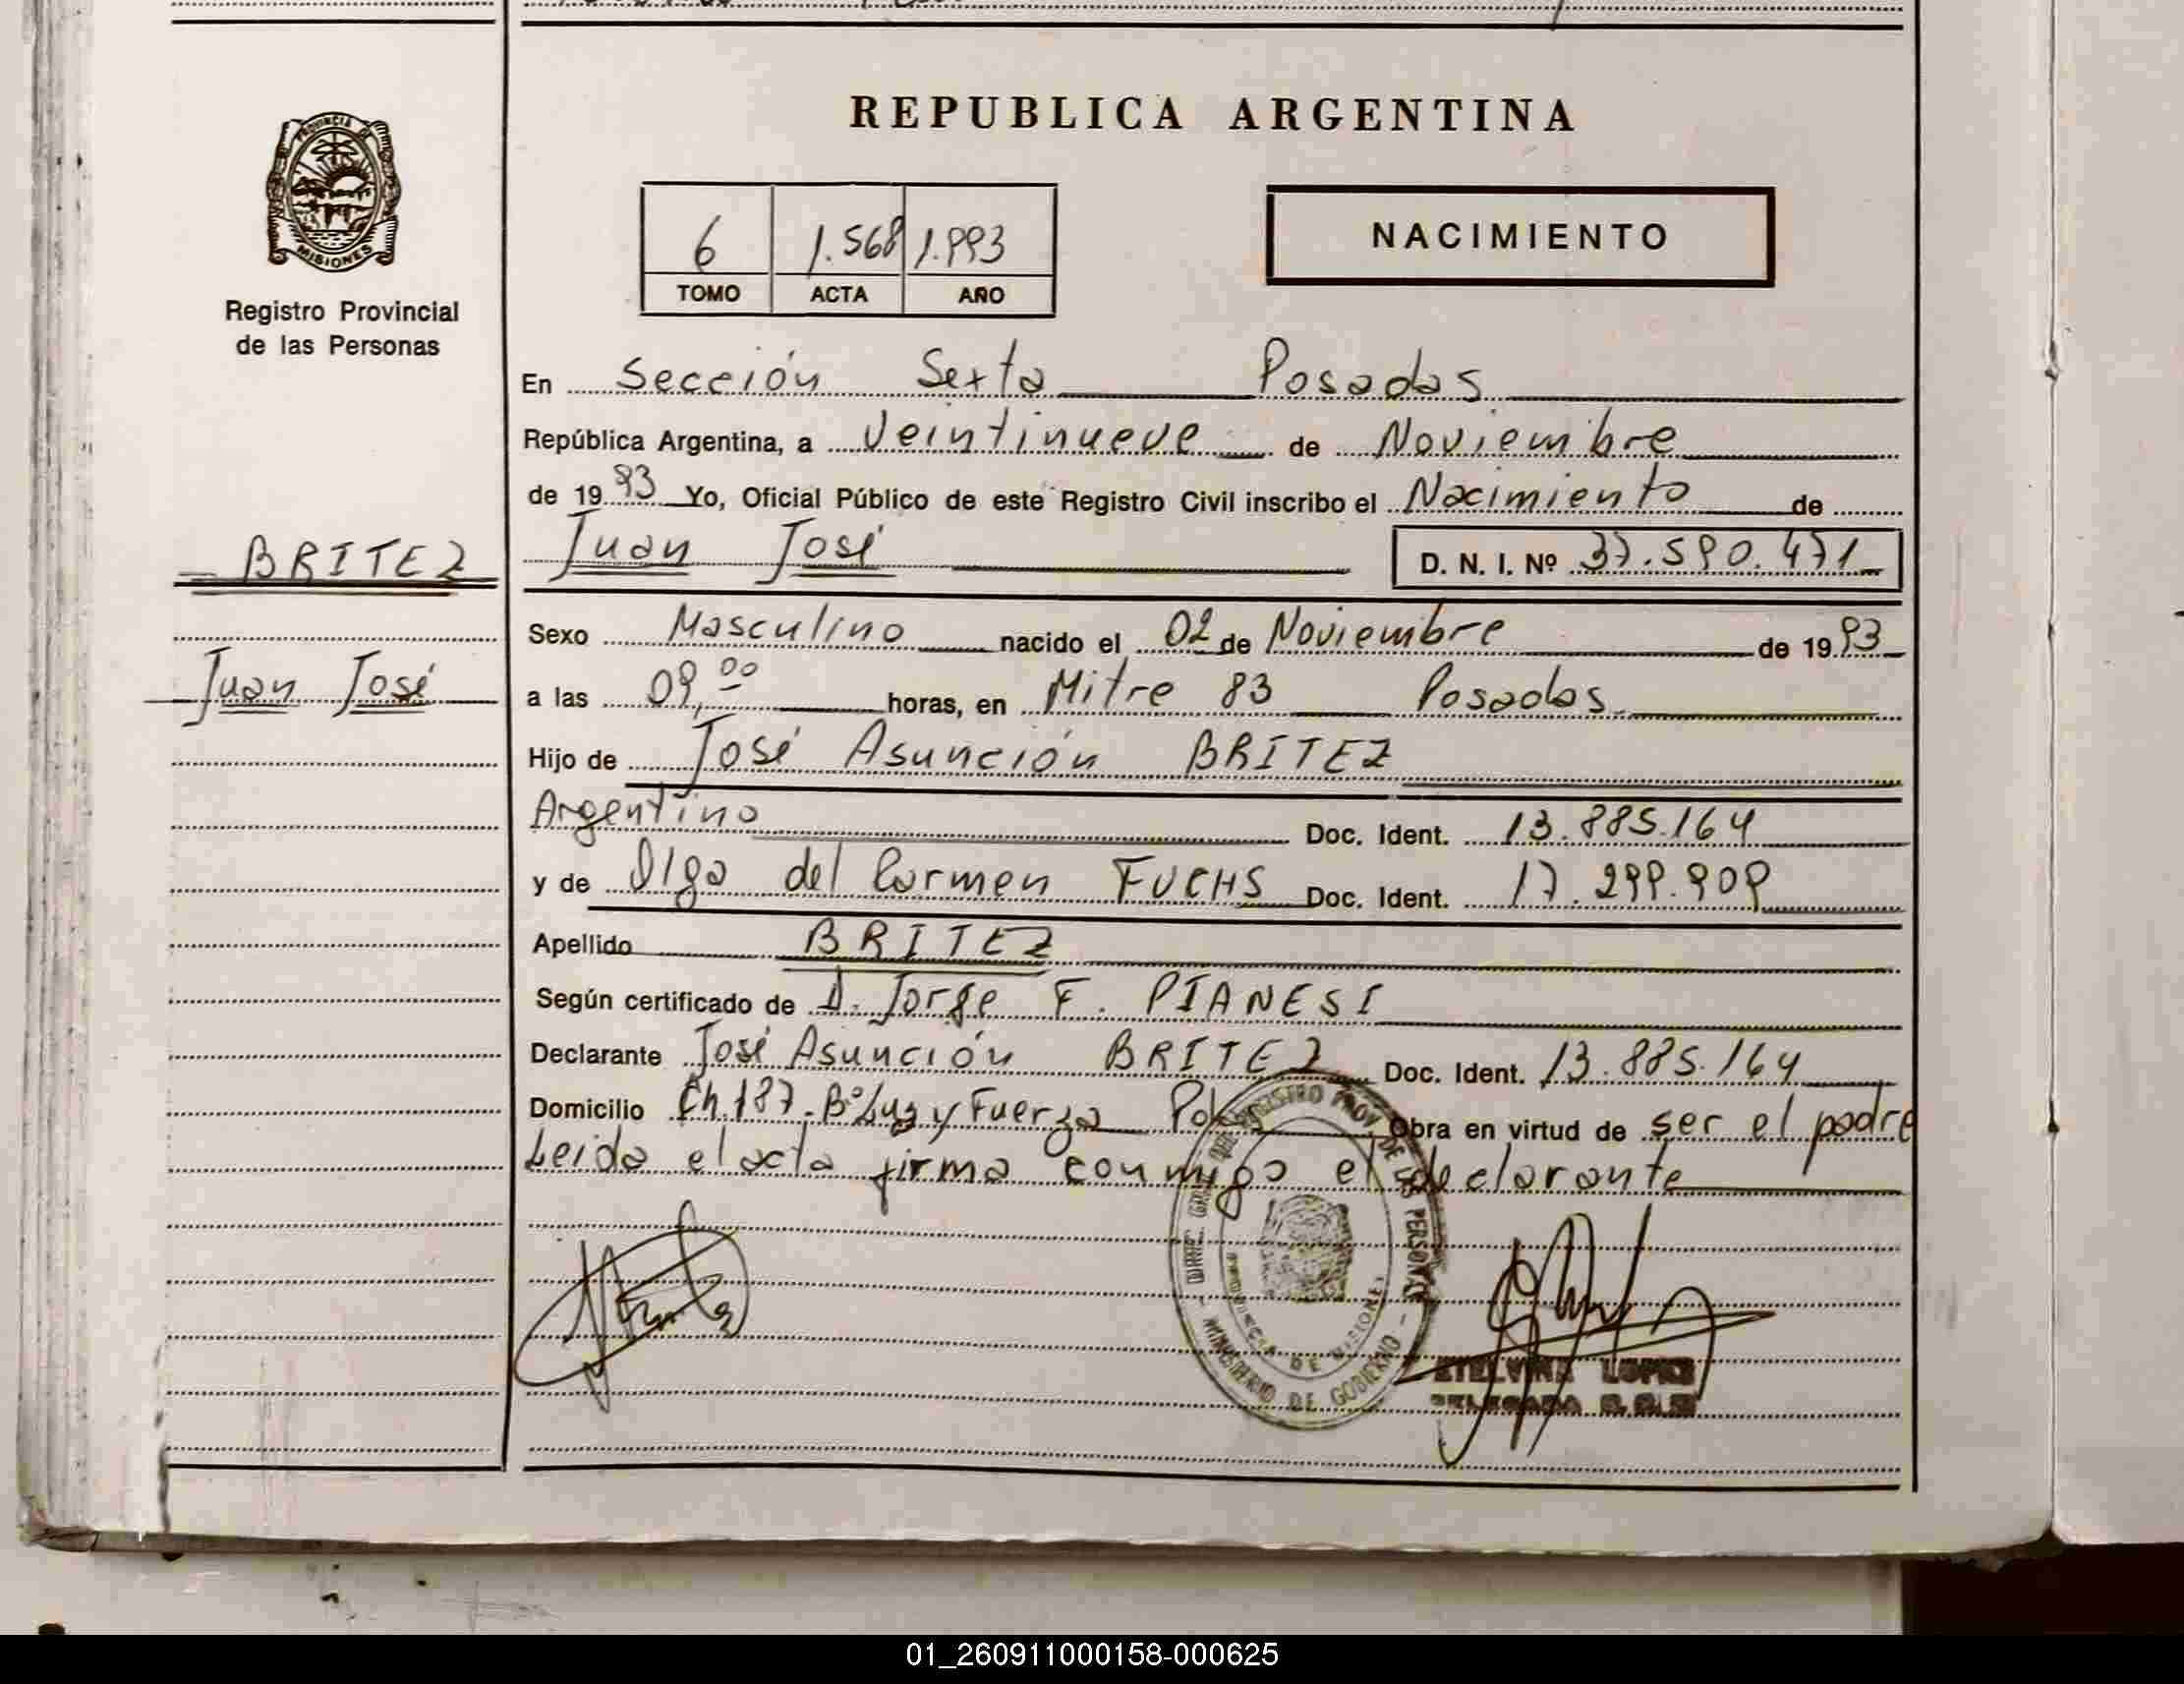 REPUBLICA ARGENTINA
PROVINCIA DE
MISIONES
Registro Provincial
de las Personas
6 1.568 1.993
TOMO ACTA AÑO
NACIMIENTO
En Sección Sexta Posadas
República Argentina, a Veintinueve de Noviembre
de 1993 Yo, Oficial Público de este Registro Civil inscribo el Nacimiento de
BRITEZ
Juan José D. N. I. Nº 37.590.471
Sexo Masculino nacido el 02 de Noviembre de 1993
Juan José
a las 09,00 horas, en Mitre 83 Posadas
Hijo de José Asunción BRITEZ
Argentino Doc. Ident. 13.885.164
y de Olga del Carmen FUCHS Doc. Ident. 17.299.909
Apellido BRITEZ
Según certificado de D. Jorge F. PIANESI
Declarante José Asunción BRITEZ Doc. Ident. 13.885.164
Domicilio Ch.187-BºLuz y Fuerza Obra en virtud de ser el padre
Leida el acta firma conmigo el declarante
REGISTRO PROV. DE LAS PERSONAS
PROVINCIA DE MISIONES
MINISTERIO DE GOBIERNO
ETELVINA LOPEZ
DELEGADA
01_260911000158-000625